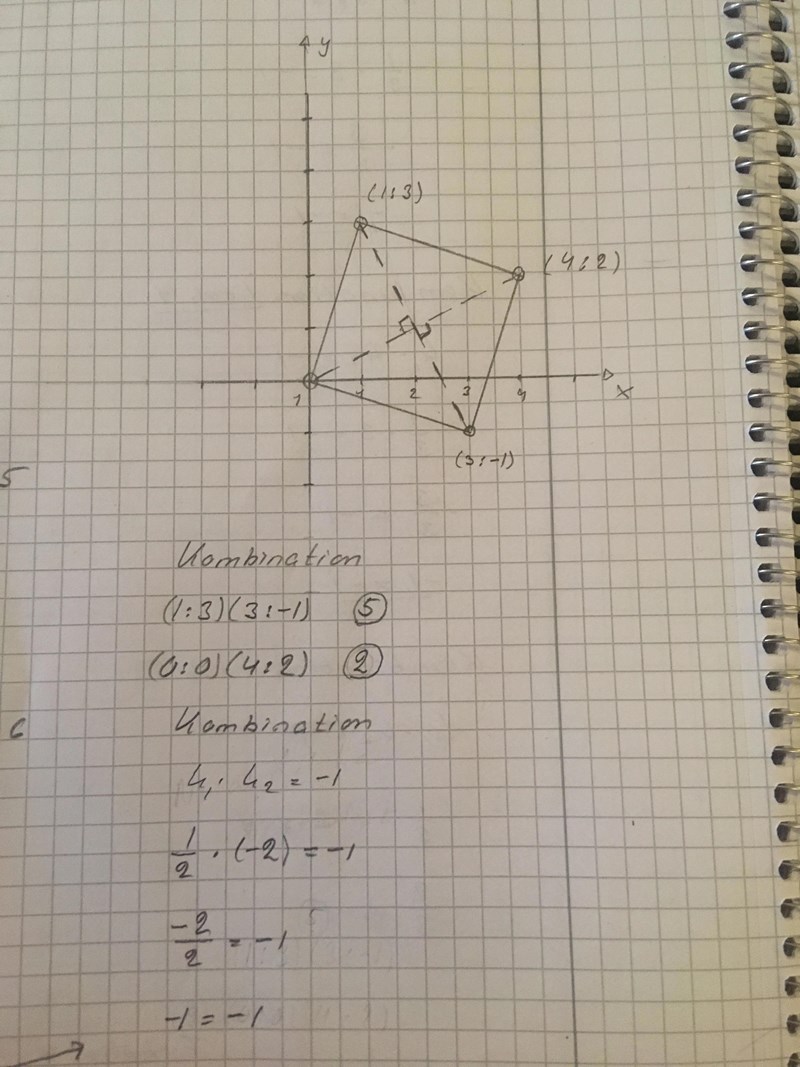 y
(1:3)
(4:2)
1 1 2 3 4
x
(3:-1)
5
Kombination
(1:3)(3:-1) 5
(0:0)(4:2) 2
6
Kombination
k₁ · k₂ = -1
1/2 · (-2) = -1
-2/2 = -1
-1 = -1